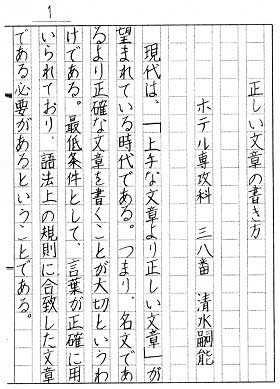 1
正しい文章の書き方
ホテル専攻科 三八番 清水嗣能
現代は、「上手な文章より正しい文章」が
望まれている時代である。つまり、名文であ
るより正確な文章を書くことが大切というわ
けである。最低条件として、言葉が正確に用
いられており、語法上の規則に合致した文章
である必要があるということである。